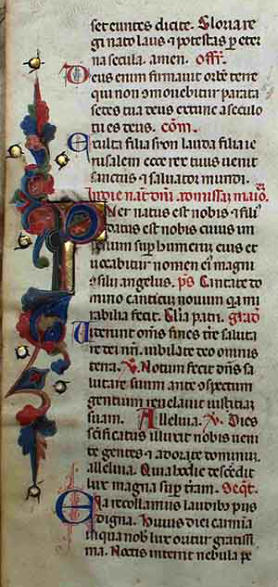 set euntes dicite. Gloria re
gi nato laus ⁊ potestas p eter
na secula. amen. offr.
Deus enim firmauit orbē terre
qui non ɔmouebitur parata
sedes tua deus ex tunc a seculo
tu es deus. cōm.
Exulta filia syon lauda filia ie
rusalem ecce rex tuus uenit
sanctus ⁊ saluator mundi.
In die nat̄ dn̄i. ad missaȝ maiorē.
Puer natus est nobis ⁊ filiꝰ
datus est nobis cuius im
perium suꝑ humerū eius et
uocabitur nomen eiꝰ magni
ɔsilii angelus. ps Cantate do
mino canticū nouum qa mi
rabilia fecit. Gl̄ia patri. grad̄
Uiderunt om̄s fines t̄re saluta
re dei nr̄i. iubilate deo omnis
terra. ℣. Notum fecit dn̄s sa
lutare suum ante ɔspectum
gentium reuelauit iustitiā
suam. Alleluia. ℣. Dies
sc̄ificatus illuxit nobis ueni
te gentes ⁊ adorate dominū.
alleluia. Quia hodie descēdit
lux magna suꝑ t̄ram. Seqt̄.
Eia recollamus laudibꝰ piis
digna. Huius diei carmīa
in qua nob̄ lux oritur gratissi
ma. Noctis interit nebula pe